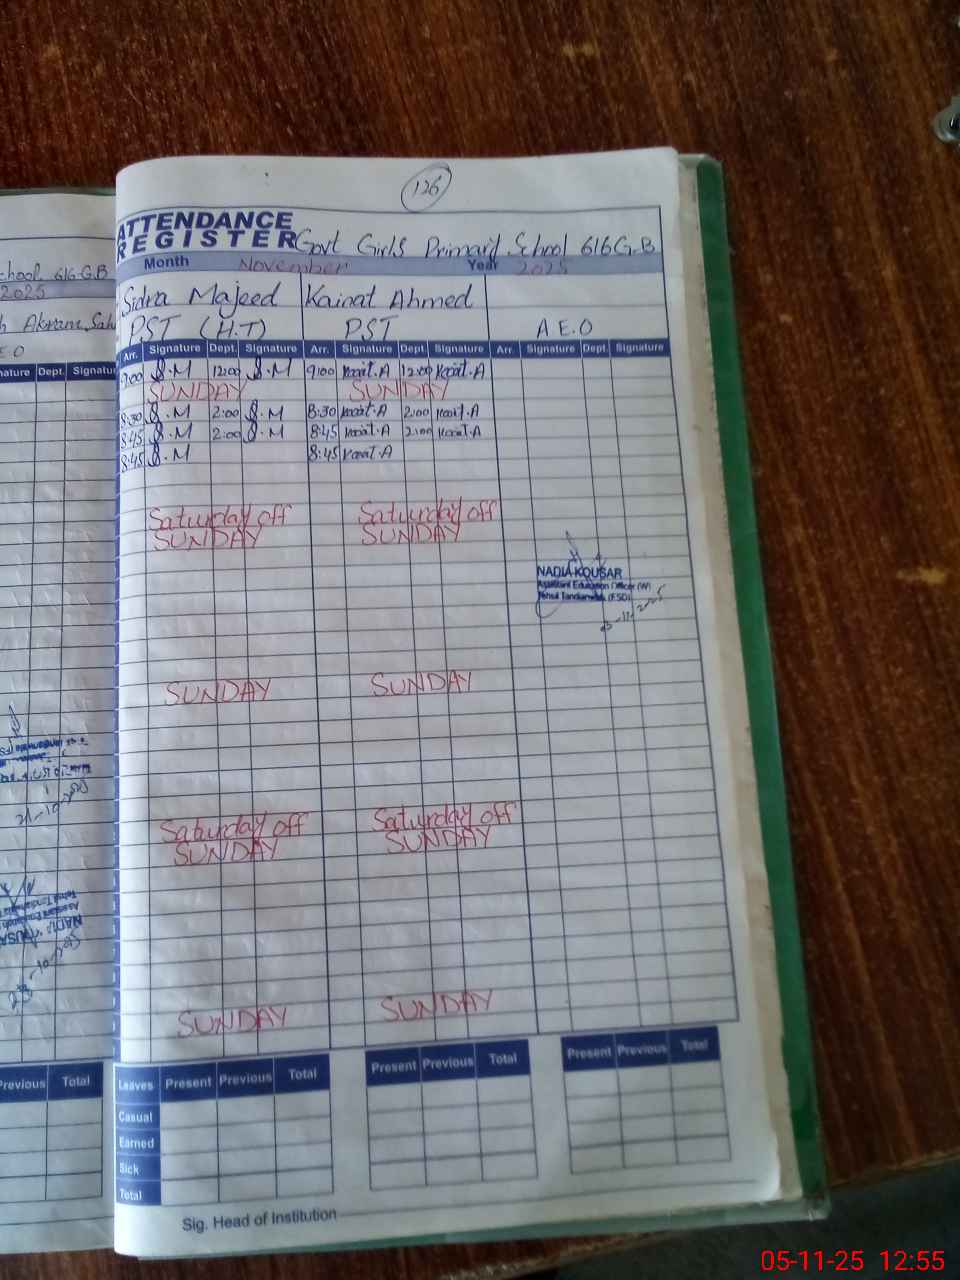 126
ATTENDANCE
REGISTER Govt Girls Primary School 616 G.B
Month November Year 2025
Sidra Majeed Kainat Ahmed
PST (H.T) PST A.E.O
Arr. Signature Dept. Signature Arr. Signature Dept. Signature Arr. Signature Dept. Signature
9:00 S.M 12:00 S.M 9:00 Kainat.A 12:00 Kainat.A
SUNDAY SUNDAY
8:30 S.M 2:00 S.M 8:30 Kainat.A 2:00 Kainat.A
8:45 S.M 2:00 S.M 8:45 Kainat.A 2:00 Kainat.A
8:45 S.M 8:45 Kainat.A
Saturday off Saturday off
SUNDAY SUNDAY
NADIA KOUSAR
Assistant Education Officer (W)
SUNDAY SUNDAY
Saturday off Saturday off
SUNDAY SUNDAY
SUNDAY SUNDAY
Leaves Present Previous Total Present Previous Total Present Previous Total
Casual
Earned
Sick
Total
Sig. Head of Institution
chool 616 G.B
2025
Akram
E.O
nature Dept. Signatu
21-10-2025
Previous Total
05-11-25 12:55